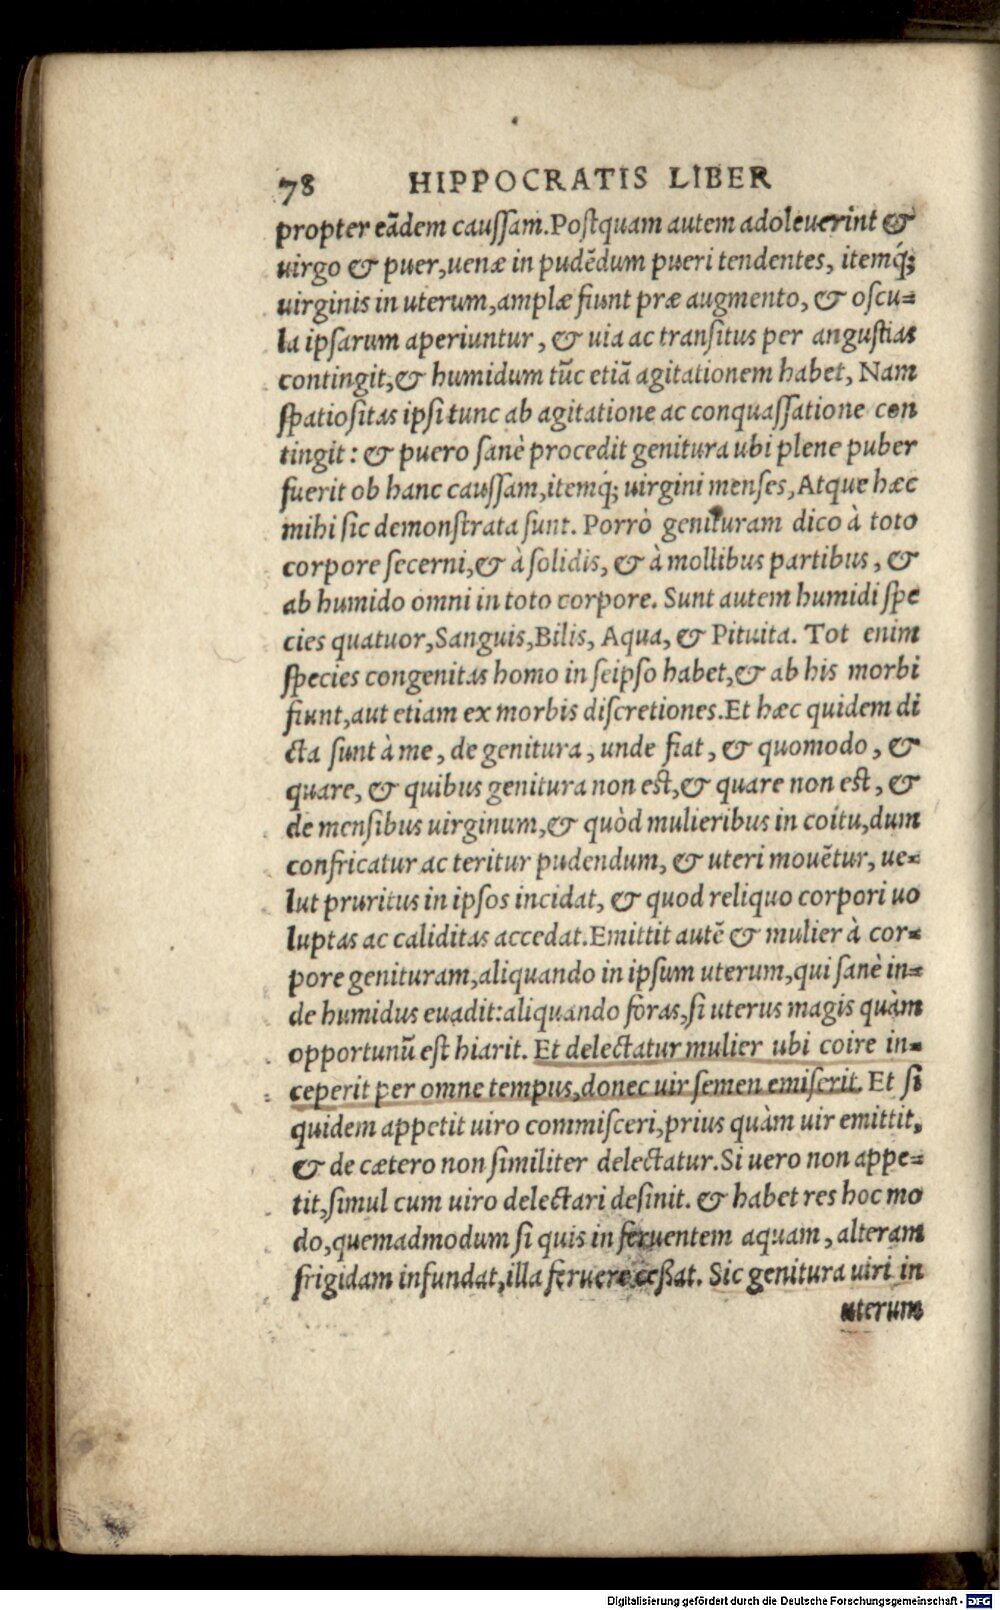 78 HIPPOCRATIS LIBER
propter eãdem cauſſam.Poſtquam autem adoleuerint &
uirgo & puer,uenæ in pudẽdum pueri tendentes, itemq́;
uirginis in uterum,amplæ fiunt præ augmento, & oſcu-
la ipſarum aperiuntur, & uia ac tranſitus per anguſtias
contingit,& humidum tũc etiã agitationem habet, Nam
ſpatioſitas ipſi tunc ab agitatione ac conquaſſatione con
tingit: & puero ſanè procedit genitura ubi plene puber
fuerit ob hanc cauſſam,itemq́; uirgini menſes, Atque hæc
mihi ſic demonſtrata ſunt. Porrò genituram dico à toto
corpore ſecerni,& à ſolidis, & à mollibus partibus, &
ab humido omni in toto corpore. Sunt autem humidi ſpe
cies quatuor,Sanguis,Bilis, Aqua, & Pituita. Tot enim
ſpecies congenitas homo in ſeipſo habet,& ab his morbi
fiunt,aut etiam ex morbis diſcretiones.Et hæc quidem di
cta ſunt à me, de genitura, unde fiat, & quomodo, &
quare, & quibus genitura non eſt,& quare non eſt, &
de menſibus uirginum,& quòd mulieribus in coitu,dum
confricatur ac teritur pudendum, & uteri mouẽtur, ue-
lut pruritus in ipſos incidat, & quod reliquo corpori uo
luptas ac caliditas accedat.Emittit autẽ & mulier à cor-
pore genituram,aliquando in ipſum uterum,qui ſanè in-
de humidus euadit:aliquando foras,ſi uterus magis quàm
opportunũ eſt hiarit. Et delectatur mulier ubi coire in-
ceperit per omne tempus,donec uir ſemen emiſerit. Et ſi
quidem appetit uiro commiſceri,prius quàm uir emittit,
& de cætero non ſimiliter delectatur.Si uero non appe-
tit,ſimul cum uiro delectari deſinit. & habet res hoc mo
do,quemadmodum ſi quis in feruentem aquam, alteram
frigidam infundat,illa feruere ceßat. Sic genitura uiri in
uterum
Digitalisierung gefördert durch die Deutsche Forschungsgemeinschaft - DFG